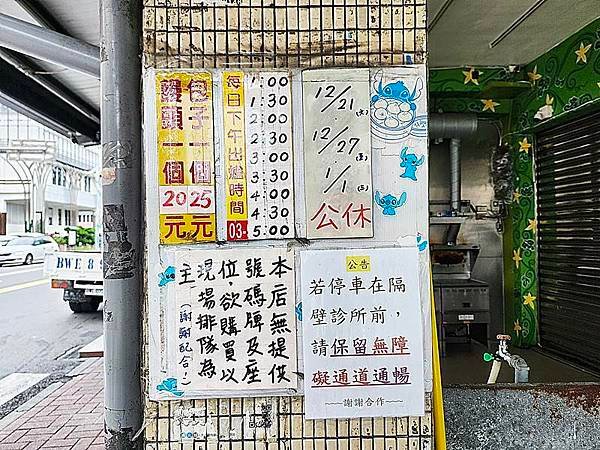 包子一個25元
饅頭一個20元
每日下午出爐時間
03-
1:00
1:30
2:00
2:30
3:00
3:30
4:00
4:30
5:00
12/21
12/27
1/1
公休
本店無提供
號碼牌及座
位,欲購買以
現場排隊為
主。(謝謝配合!)
公告
若停車在隔
壁診所前,
請保留無障
礙通道通暢
——謝謝合作——
BWE 8